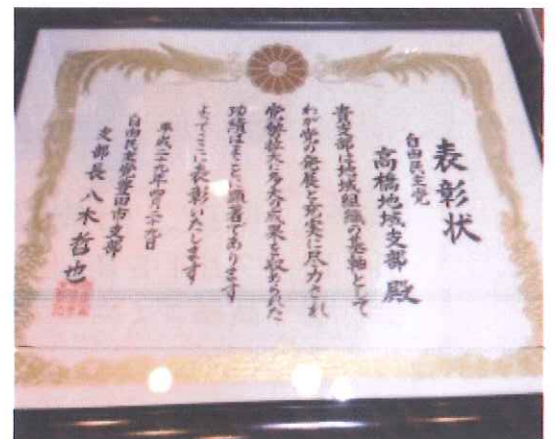 表彰状
自由民主党
高橋地域支部殿
貴支部は地域組織の基軸として
わが党の発展と充実に尽力され
党勢拡大に多大の成果を収められた
功績はまことに顕著であります
よってここに表彰いたします
平成二十九年四月二十九日
自由民主党豊田市支部
支部長 八木哲也